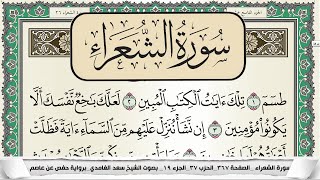 سورة الشعراء
طسٓمٓ ١ تِلْكَ ءَايَٰتُ ٱلْكِتَٰبِ ٱلْمُبِينِ ٢ لَعَلَّكَ بَٰخِعٌ نَّفْسَكَ أَلَّا
يَكُونُوا۟ مُؤْمِنِينَ ٣ إِن نَّشَأْ نُنَزِّلْ عَلَيْهِم مِّنَ ٱلسَّمَآءِ ءَايَةً فَظَلَّتْ
سورة الشعراء الصفحة ٣٦٧ الحزب ٣٧ الجزء ١٩ بصوت الشيخ سعد الغامدي برواية حفص عن عاصم